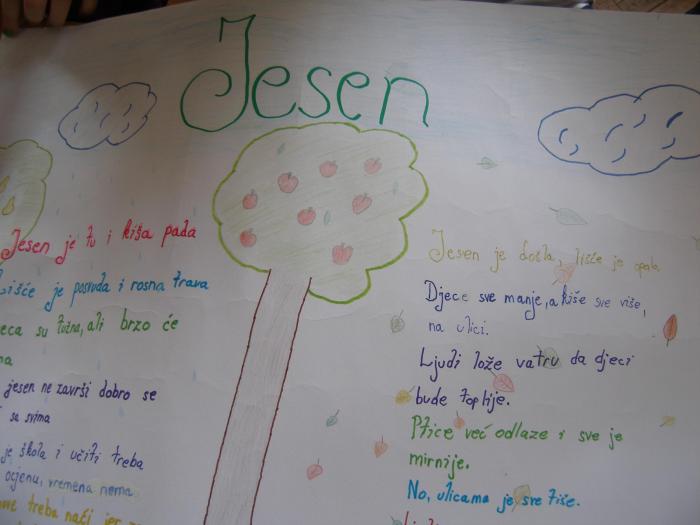 Jesen
Jesen je tu i kiša pada
Lišće je posvuda i rosna trava
eca su tužna, ali brzo će
na
jesen ne završi dobro se
sa svima
je škola i učiti treba
ocjenu, vremena nema.
treba naći jer
Jesen je došla, lišće je opalo
Djece sve manje, a kiše sve više,
na ulici.
Ljudi lože vatru da djeci
bude toplije.
Ptice već odlaze i sve je
mirnije.
No, ulicama je sve tiše.